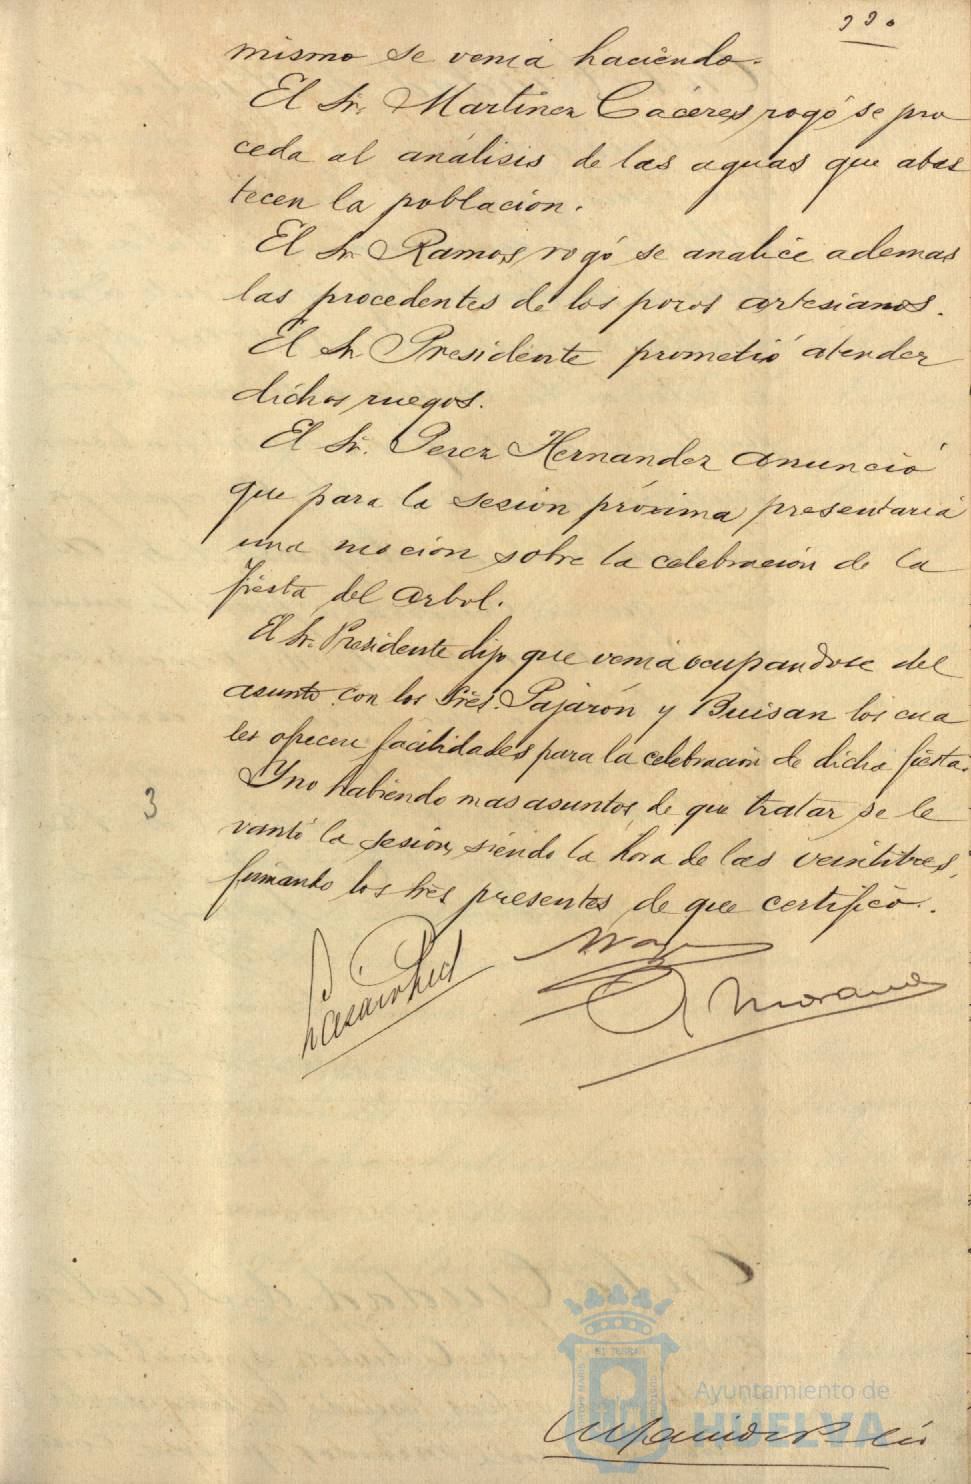 220
mismo se venia haciendo.
El Sr. Martinez Cáceres, rogó se pro
ceda al análisis de las aguas que abas
tecen la poblacion.
El Sr. Ramos, rogó se analice ademas
las procedentes de los pozos artesianos.
El Sr. Presidente prometió atender
dichos ruegos.
El Sr. Perez Hernandez anunció
que para la sesion próxima presentaria
una mocion sobre la celebracion de la
fiesta del arbol.
El Sr. Presidente dijo que venia ocupandose del
asunto con los Sres. Pajarón y Buisan los cua
les ofrecen facilidades para la celebracion de dicha fiesta.
Y no habiendo mas asuntos de que tratar se le
vantó la sesion, siendo la hora de las veintitres,
firmando los Sres presentes de que certifico.
3
Morano
Ayuntamiento de
HUELVA